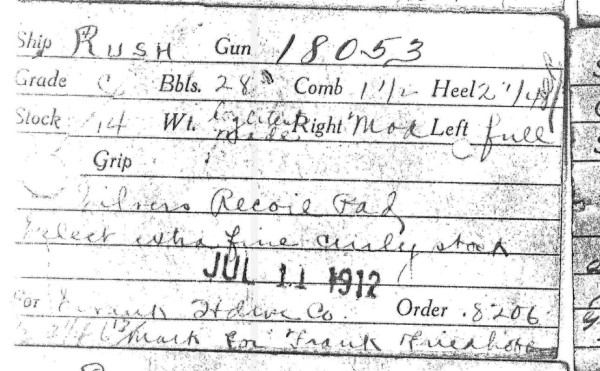 Ship RUSH Gun 18053
Grade C Bbls. 28" Comb 1 1/2 Heel 2 1/4
Stock 14 Wt. Right Mod Left full
Grip
Silvers Recoil Pad
Select extra fine curly stock
JUL 11 1912
For Frank Hdwe Co. Order 8206
mark for Frank